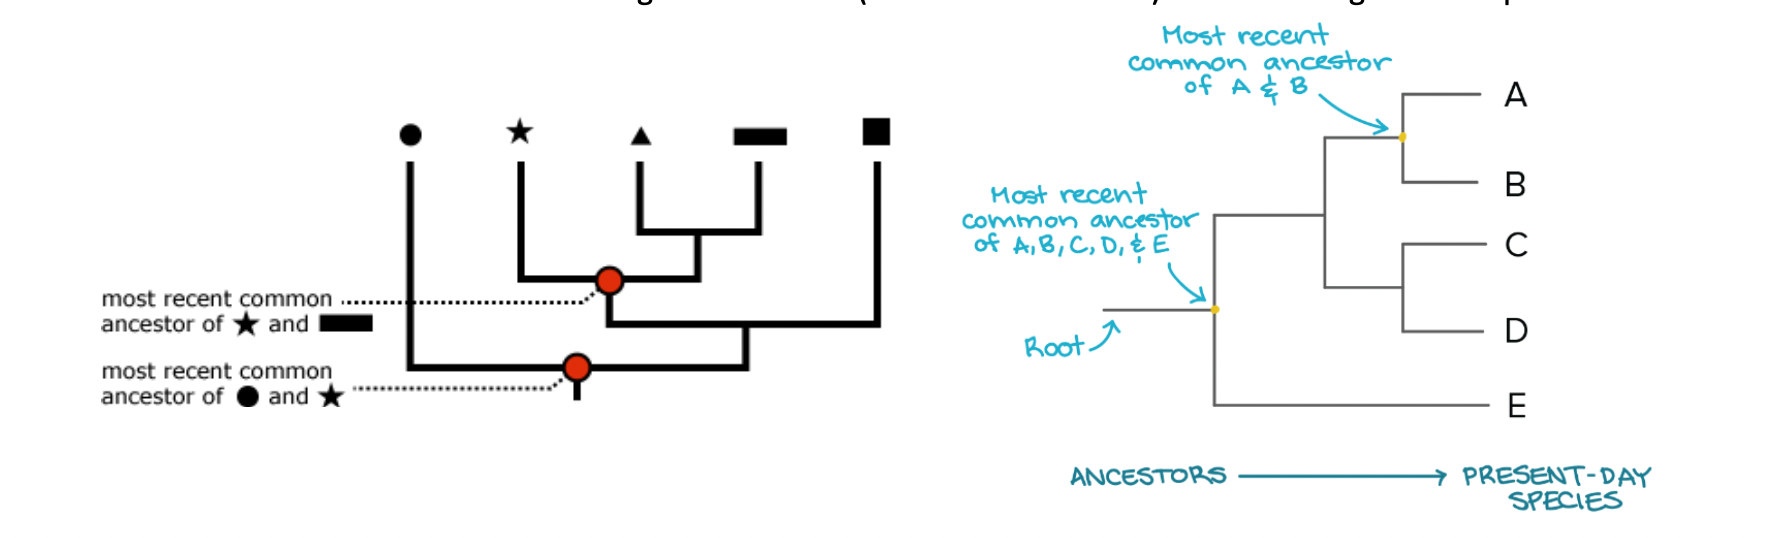 Most recent
common ancestor
of A & B
A
B
Most recent
common ancestor
of A, B, C, D, & E
C
D
Root
E
most recent common
ancestor of ★ and ▬
most recent common
ancestor of ● and ★
ANCESTORS → PRESENT-DAY
SPECIES